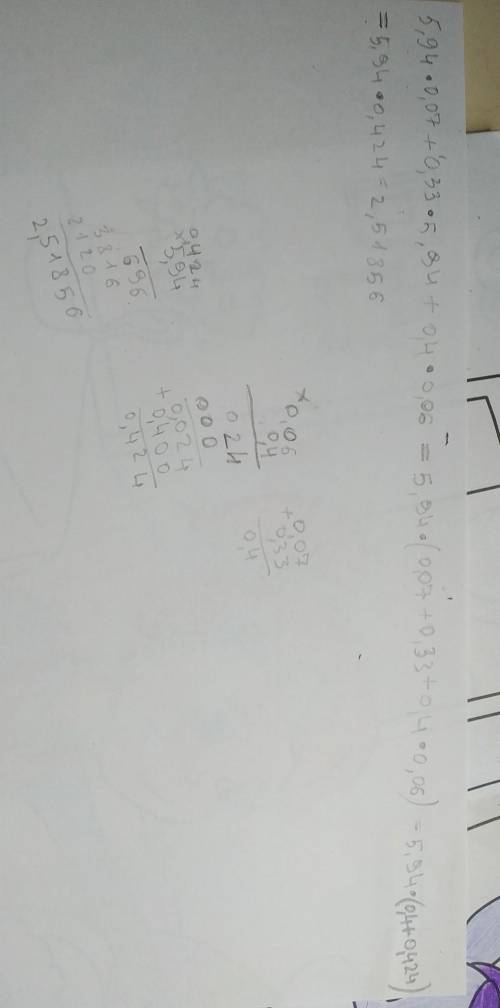 5,94·0,07+0,33·5,94+0,4·0,06=5,94·(0,07+0,33+0,4·0,06)=5,94·(0,4+0,424)
=5,94·0,424=2,51856
0,424
×5,94
696
3816
2120
2,51856
×0,06
0,4
024
000
0,024
+0,400
0,424
0,07
+0,33
0,4